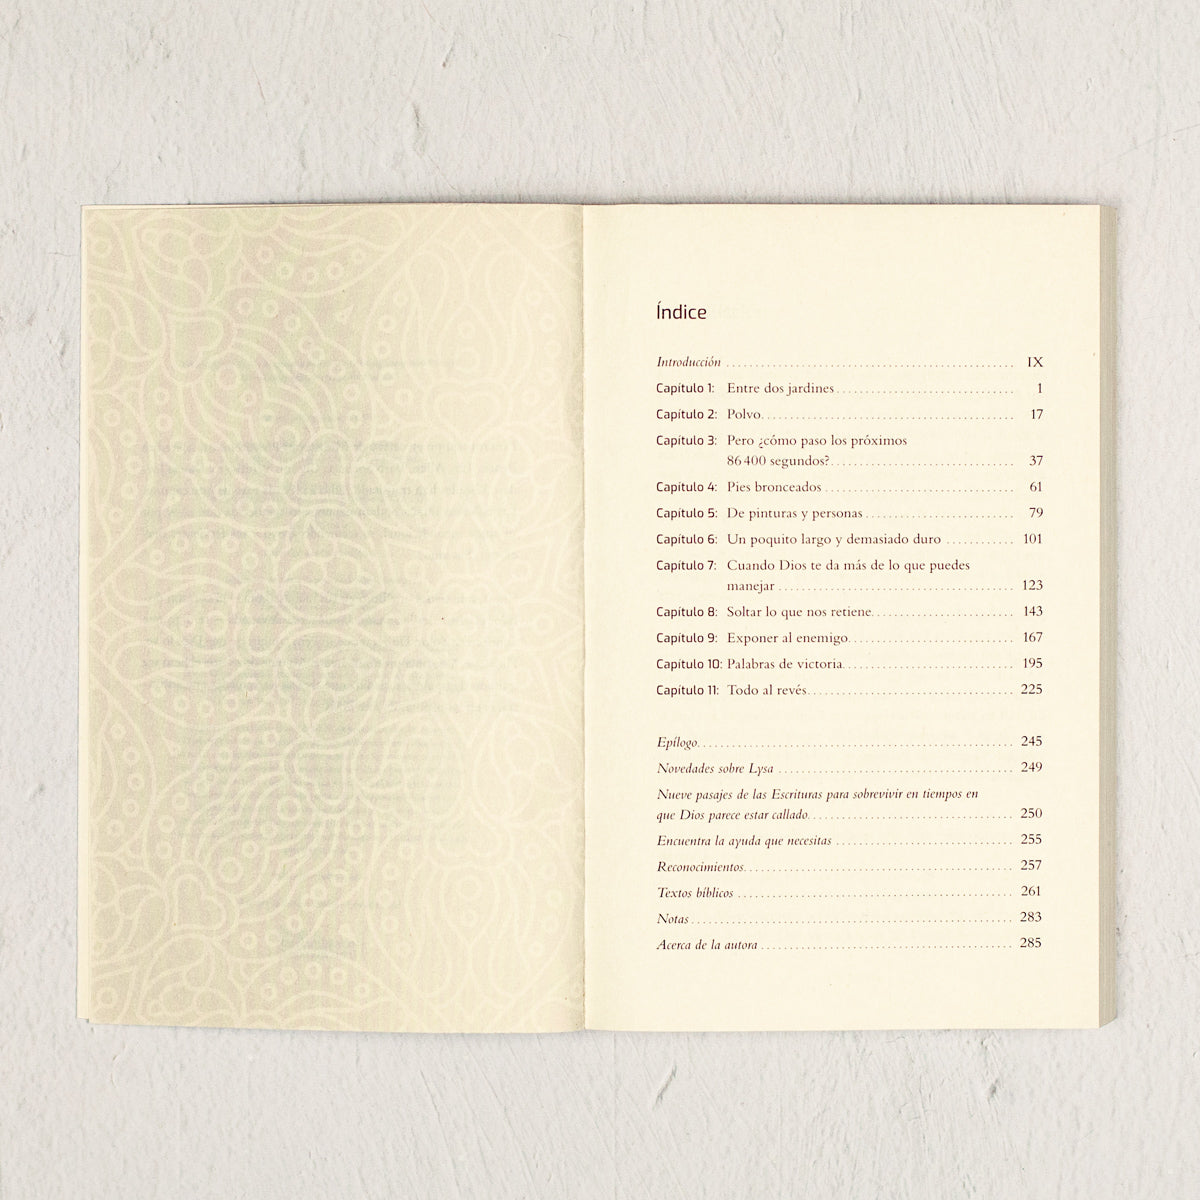 Índice
Introducción ........ IX
Capítulo 1: Entre dos jardines ........ 1
Capítulo 2: Polvo ........ 17
Capítulo 3: Pero ¿cómo paso los próximos
86 400 segundos? ........ 37
Capítulo 4: Pies bronceados ........ 61
Capítulo 5: De pinturas y personas ........ 79
Capítulo 6: Un poquito largo y demasiado duro ........ 101
Capítulo 7: Cuando Dios te da más de lo que puedes
manejar ........ 123
Capítulo 8: Soltar lo que nos retiene ........ 143
Capítulo 9: Exponer al enemigo ........ 167
Capítulo 10: Palabras de victoria ........ 195
Capítulo 11: Todo al revés ........ 225
Epílogo ........ 245
Novedades sobre Lysa ........ 249
Nueve pasajes de las Escrituras para sobrevivir en tiempos en
que Dios parece estar callado ........ 250
Encuentra la ayuda que necesitas ........ 255
Reconocimientos ........ 257
Textos bíblicos ........ 261
Notas ........ 283
Acerca de la autora ........ 285